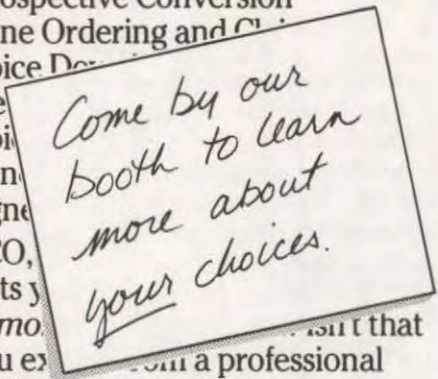 ospective Conversion
ne Ordering and
ice
Come by our
booth to learn
more about
your choices.
CO,
ts y
mo isn't that
u ex om a professional